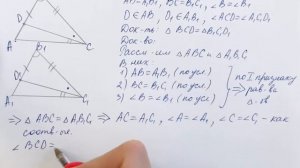 AB=A₁B₁, BC=B₁C₁, ∠B=∠B₁
D∈AB, D₁∈A₁B₁, ∠ACD=∠A₁C₁D₁
Док-ть: △BCD=△B₁C₁D₁
Док-во:
Рассм-им △ABC и △A₁B₁C₁
В них:
1) AB=A₁B₁ (по усл.)
2) BC=B₁C₁ (по усл.)
3) ∠B=∠B₁ (по усл.)
по I признаку
рав-ва
△-ов
⇒ △ABC=△A₁B₁C₁ ⇒ AC=A₁C₁, ∠A=∠A₁, ∠C=∠C₁ - как
соотв. эл.
∠BCD=
D
A
C
B₁
D₁
A₁
C₁